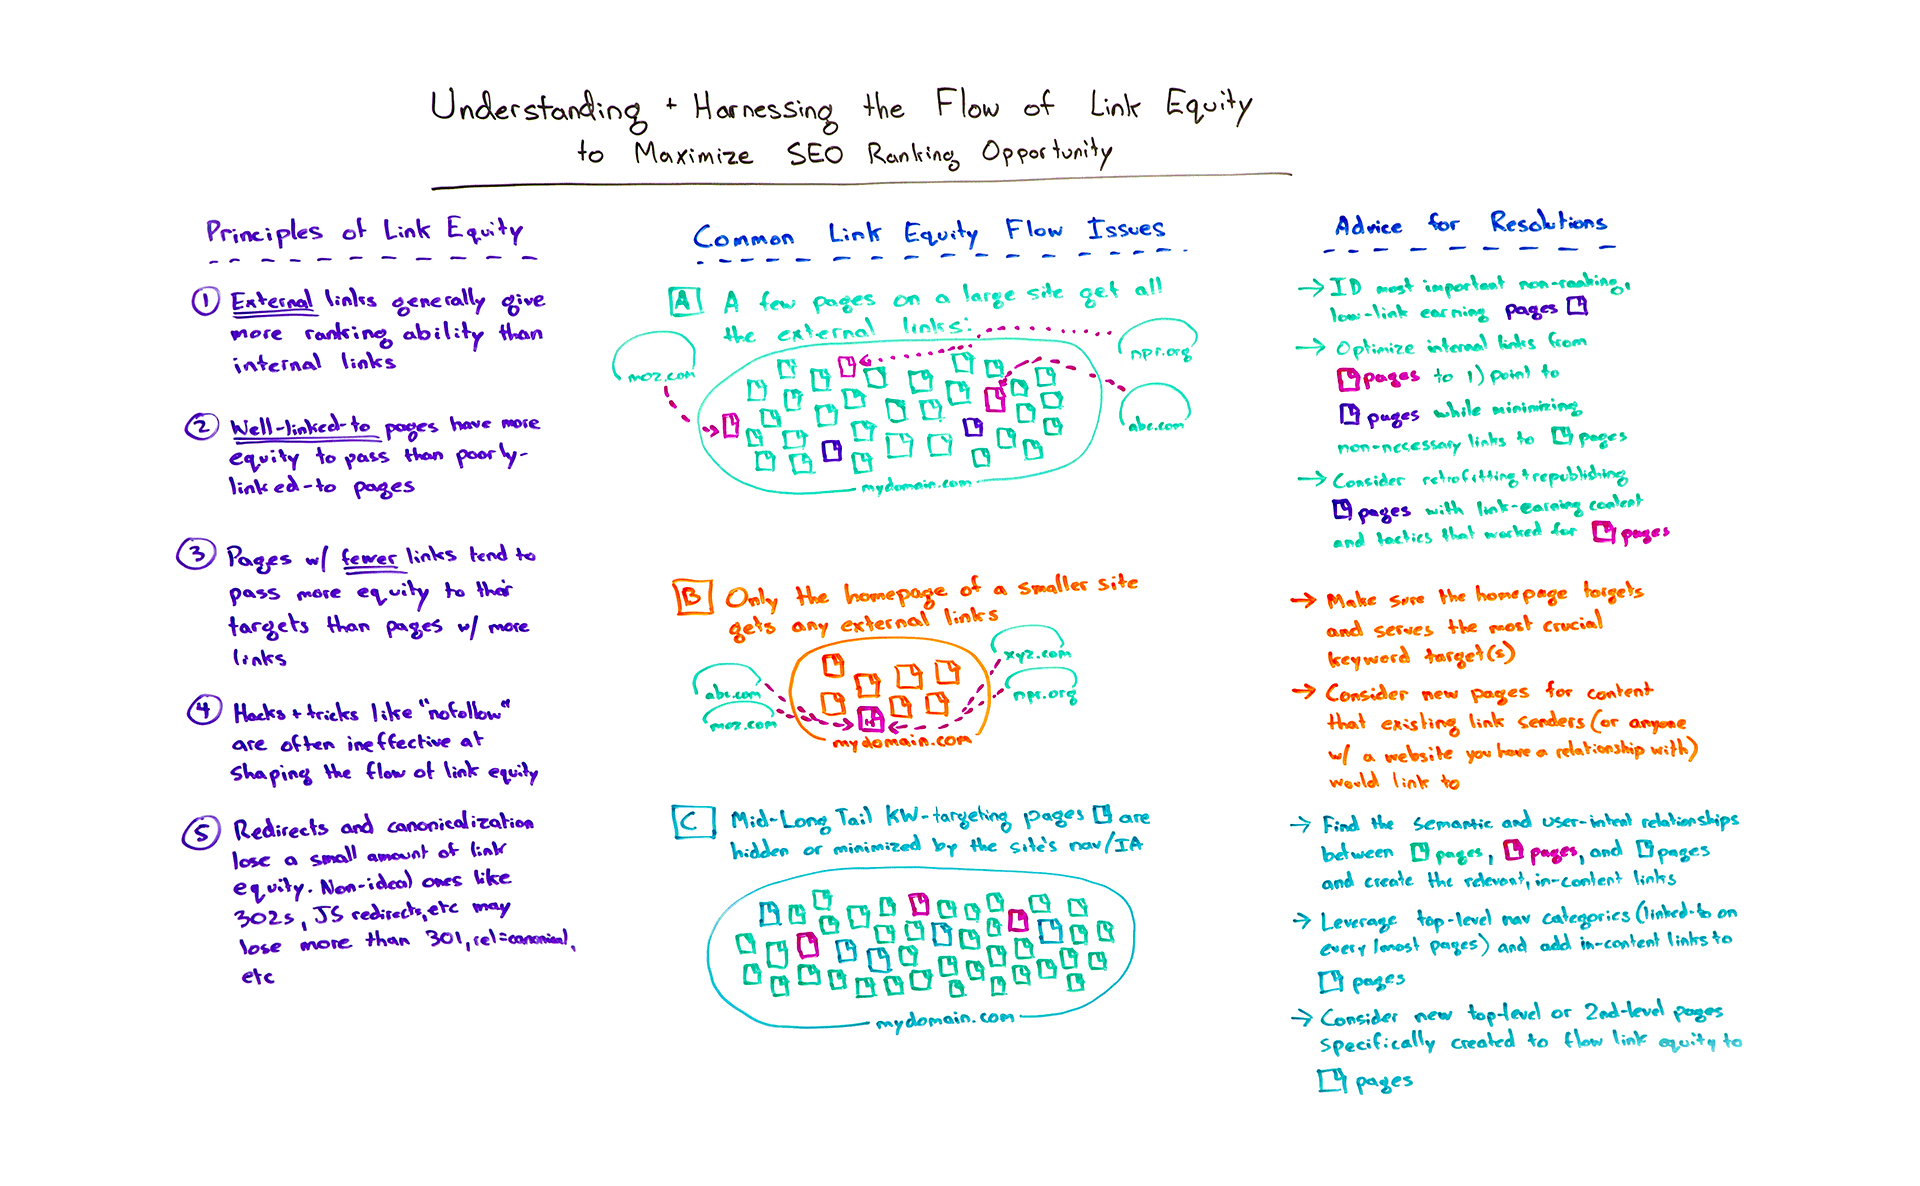 Understanding + Harnessing the Flow of Link Equity
to Maximize SEO Ranking Opportunity
Principles of Link Equity
1 External links generally give
more ranking ability than
internal links
2 Well-linked-to pages have more
equity to pass than poorly-
linked-to pages
3 Pages w/ fewer links tend to
pass more equity to their
targets than pages w/ more
links
4 Hacks + tricks like "nofollow"
are often ineffective at
shaping the flow of link equity
5 Redirects and canonicalization
lose a small amount of link
equity. Non-ideal ones like
302s, JS redirects, etc may
lose more than 301, rel=canonical,
etc
Common Link Equity Flow Issues
A A few pages on a large site get all
the external links:
moz.com
npr.org
abc.com
mydomain.com
B Only the homepage of a smaller site
gets any external links
abc.com
moz.com
xyz.com
npr.org
H
mydomain.com
C Mid-Long Tail KW-targeting pages are
hidden or minimized by the site's nav/IA
mydomain.com
Advice for Resolutions
→ ID most important non-ranking,
low-link earning pages
→ Optimize internal links from
pages to 1) point to
pages while minimizing
non-necessary links to pages
→ Consider retrofitting + republishing
pages with link-earning content
and tactics that worked for pages
→ Make sure the homepage targets
and serves the most crucial
keyword target(s)
→ Consider new pages for content
that existing link senders (or anyone
w/ a website you have a relationship with)
would link to
→ Find the semantic and user-intent relationships
between pages, pages, and pages
and create the relevant, in-content links
→ Leverage top-level nav categories (linked-to on
every/most pages) and add in-content links to
pages
→ Consider new top-level or 2nd-level pages
specifically created to flow link equity to
pages